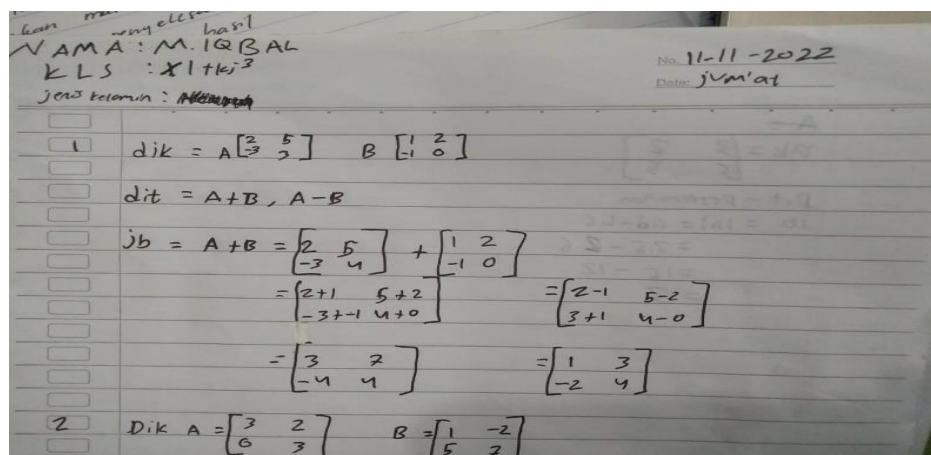 kan
hasil
NAMA : M. IQBAL
KLS : XI tkj 3
jenis kelamin :
No. 11-11-2022
Date: jum'at
1 dik = A [2 5] B [1 2]
[-3 ] [-1 0]
dit = A+B, A-B
jb = A+B = [2 5] + [1 2]
[-3 4] [-1 0]
= [2+1 5+2] = [2-1 5-2]
[-3+-1 4+0] [3+1 4-0]
= [3 7] = [1 3]
[-4 4] [-2 4]
2 Dik A = [3 2] B = [1 -2]
[6 3] [5 2]